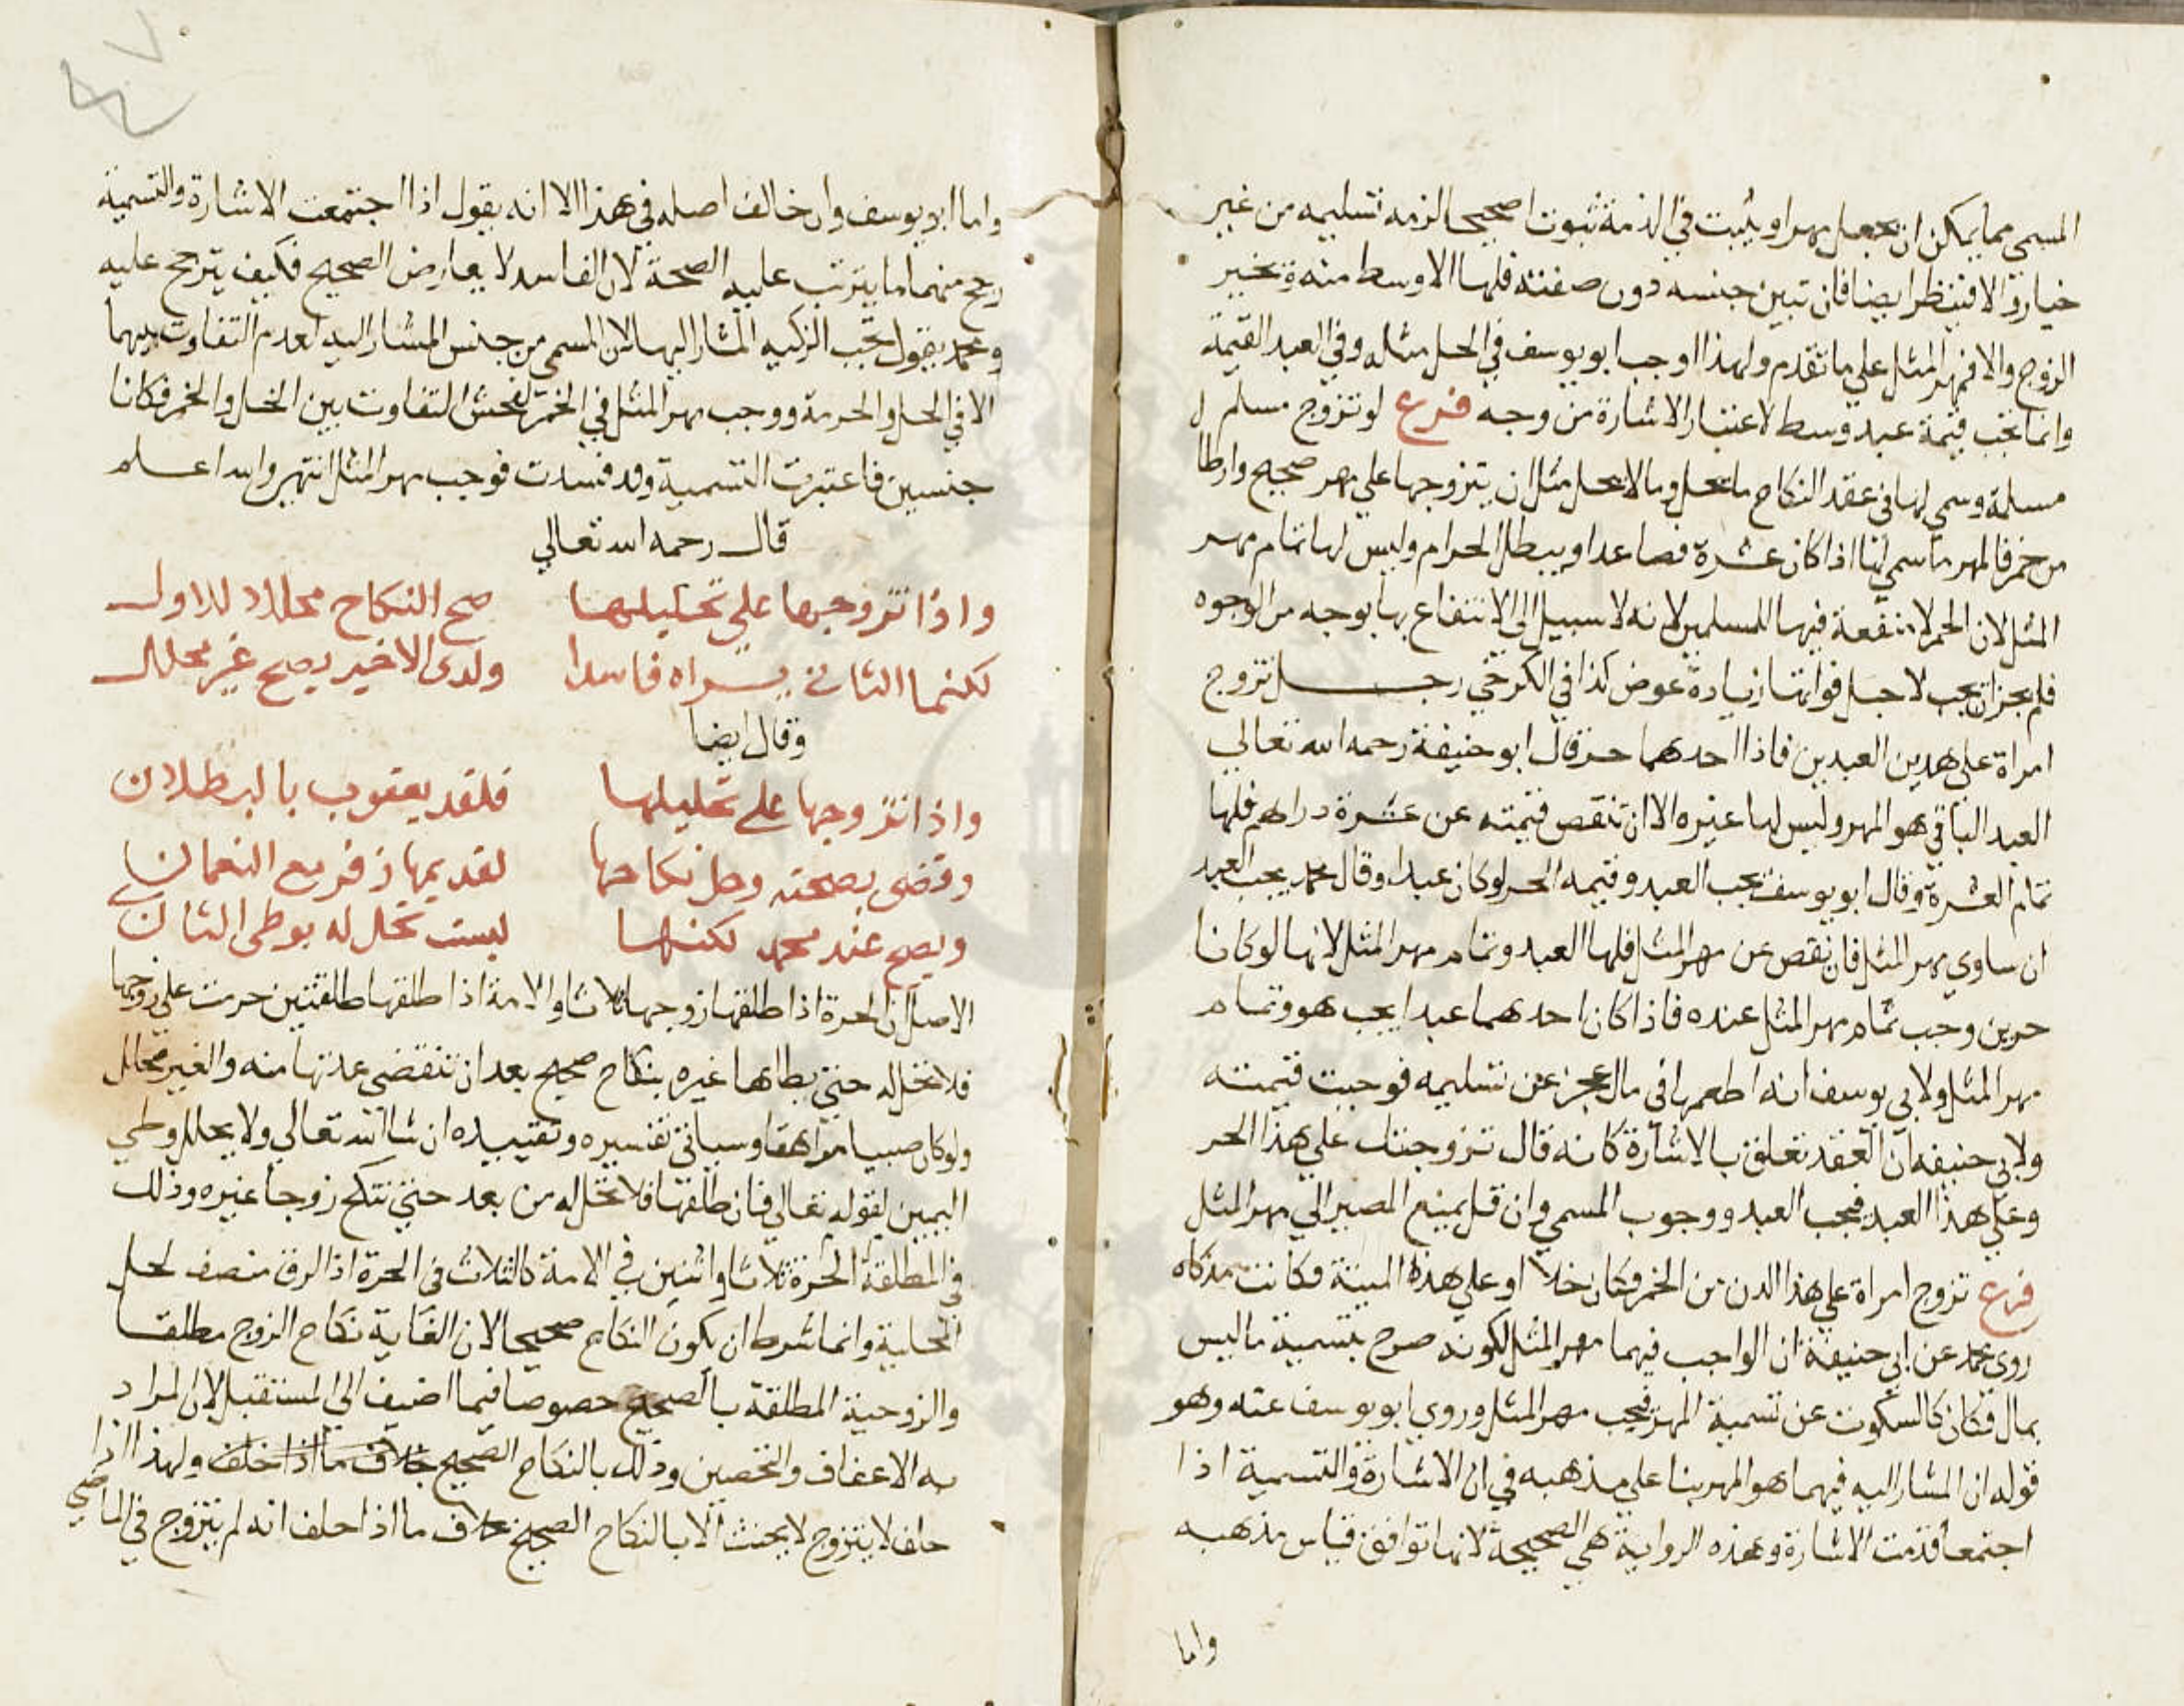 المسمى مما يمكن ان يجعل مهرا ويثبت في الذمة ثبوتا صحيحا لزمه تسليمه من غير
خيار والا فينظر ايضا فان تبين جنسه دون صفته فلها الاوسط منه ويخير
الزوج والا فمهر المثل على ما تقدم ولهذا اوجب ابو يوسف في الخل مثله وفي العبد القيمة
وانما تجب قيمة عبد وسط لاعتبار الاشارة من وجه فرع لو تزوج مسلم
مسلمة وسمي لها في عقد النكاح ما يحل وما لا يحل مثل ان يتزوجها علي مهر صحيح وارطال
من خمر فالمهر ما سمي لها اذا كان عشرة فصاعدا ويبطل الحرام وليس لها تمام مهر
المثل لان الخمر لا منفعة فيها للمسلمين لانه لا سبيل الى الانتفاع بها بوجه من الوجوه
فلم يجز ان يجب لاجل فواتها زيادة عوض كذا في الكرخي رجل تزوج
امراة على هذين العبدين فاذا احدهما حر قال ابو حنيفة رحمه الله تعالي
العبد الباقي هو المهر وليس لها غيره الا ان تنقص قيمته عن عشرة دراهم فلها
تمام العشرة وقال ابو يوسف يجب العبد وقيمه الحر لو كان عبدا وقال محمد يجب العبد
ان ساوي مهر المثل فان نقص عن مهر المثل فلها العبد وتمام مهر المثل لانها لو كانا
حرين وجب تمام مهر المثل عنده فاذا كان احدهما عبدا يجب هو وتمام
مهر المثل ولابي يوسف انه اطعمها في مال عجز عن تسليمه فوجبت قيمته
ولابي حنيفه ان العقد تعلق بالاشارة كانه قال تزوجتك علي هذا الحر
وعلي هذا العبد فيجب العبد ووجوب المسمي وان قل يمنع المصير الي مهر المثل
فرع تزوج امراة علي هذا الدن من الخمر فكان خلا او علي هذه الميتة فكانت مذكاه
روى محمد عن ابي حنيفة ان الواجب فيهما مهر المثل لكونه صرح بتسمية ما ليس
بمال فكان كالسكوت عن تسمية المهر فيجب مهر المثل وروي ابو يوسف عنه وهو
قوله ان المشار اليه فيهما هو المهر بنا علي مذهبه في ان الاشارة والتسمية اذا
اجتمعا قدمت الاشارة وهذه الرواية هي الصحيحة لانها توافق قياس مذهبه
واما
واما ابو يوسف وان خالف اصله في هذا الا انه يقول اذا اجتمعت الاشارة والتسمية
رجح منهما ما يترتب عليه الصحة لان الفاسد لا يعارض الصحيح فكيف يترجح عليه
ومحمد يقول تجب الزكيه المشار اليها لان المسمى من جنس المشار اليه لعدم التفاوت بينهما
الا في الحل والحرمة ووجب مهر المثل في الخمر لفحش التفاوت بين الخل والخمر فكانا
جنسين فاعتبرت التسمية وقد فسدت فوجب مهر المثل انتهي والله اعلم
قال رحمه الله تعالي
واذا تزوجها علي تحليلها صح النكاح محللا للاول
لكنما الثاني يراه فاسدا ولدى الاخير يصح غير محلل
وقال ايضا
واذا تزوجها على تحليلها فلقد يعقوب بالبطلان
وقضى بصحته وحل نكاحها لقديمها زفر مع النعمان
ويصح عند محمد لكنها ليست تحل له بوطى الثان
الاصل ان الحرة اذا طلقها زوجها ثلاثا والامة اذا طلقها طلقتين حرمت على زوجها
فلا تحل له حتي يطاها غيره بنكاح صحيح بعد ان تنقضي عدتها منه والغير محلل
ولو كان صبيا مراهقا وسياتي تفسيره وتقييده ان شا الله تعالي ولا يحلل وطي
اليمين لقوله تعالي فان طلقها فلا تحل له من بعد حتي تنكح زوجا غيره وذلك
في المطلقة الحرة ثلاثا واثنين في الامة كالثلاث في الحرة اذ الرق منصف لحل
المحلية وانما شرط ان يكون النكاح صحيحا لان الغاية نكاح الزوج مطلقا
والزوجية المطلقة بالصحيح خصوصا فيما اضيف الي المستقبل لان المراد
به الاعفاف والتحصين وذلك بالنكاح الصحيح خلاف ما اذا حلف ولهذا اذا
حلف لا يتزوج لا يحنث الا بالنكاح الصحيح خلاف ما اذا حلف انه لم يتزوج في الماضي